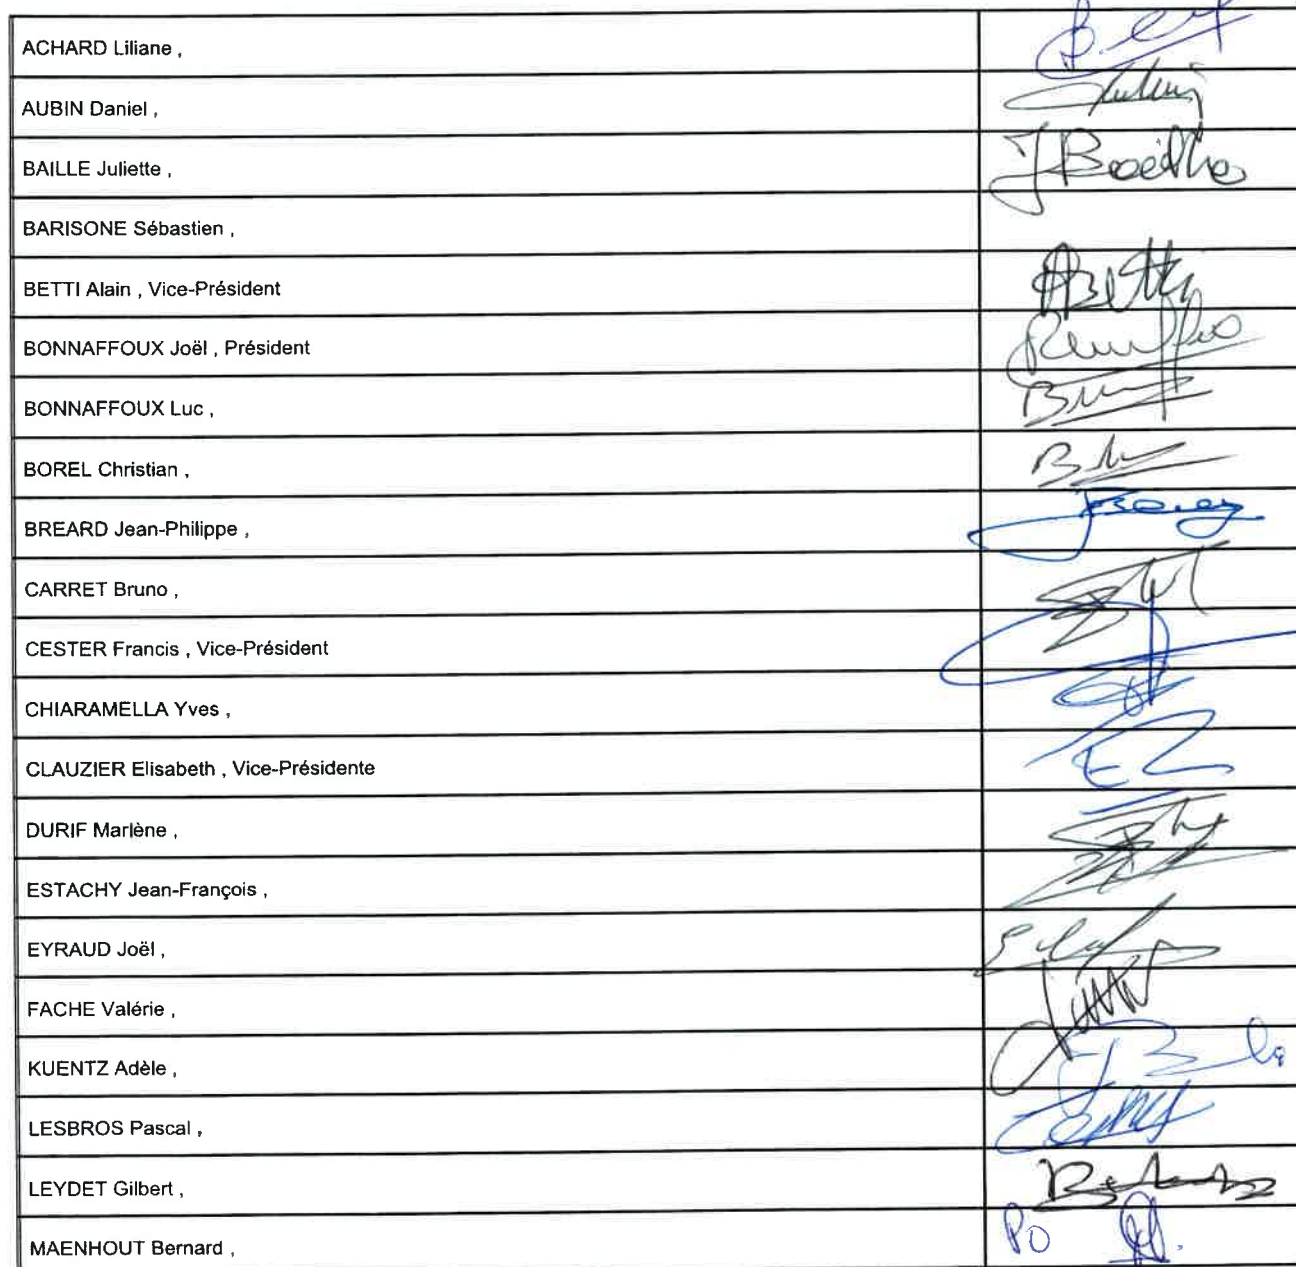 ACHARD Liliane ,
AUBIN Daniel ,
BAILLE Juliette ,
BARISONE Sébastien ,
BETTI Alain , Vice-Président
BONNAFFOUX Joël , Président
BONNAFFOUX Luc ,
BOREL Christian ,
BREARD Jean-Philippe ,
CARRET Bruno ,
CESTER Francis , Vice-Président
CHIARAMELLA Yves ,
CLAUZIER Elisabeth , Vice-Présidente
DURIF Marlène ,
ESTACHY Jean-François ,
EYRAUD Joël ,
FACHE Valérie ,
KUENTZ Adèle ,
LESBROS Pascal ,
LEYDET Gilbert ,
MAENHOUT Bernard ,
PO